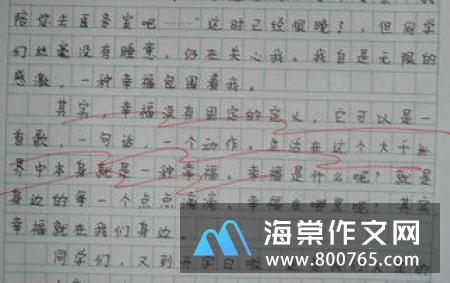 陪你去医务室吧……”这时已经很晚了，但同学
们丝毫没有睡意，仍在关心我。我自是无限的
感激，一种幸福包围着我。
其实，幸福没有固定的定义，它可以是一
首歌，一句话，一个动作。生活在这个大千世
界中本身就是一种幸福。幸福是什么呢？就是
身边的每一个点点滴滴，幸福在哪里呢？其实，
幸福就在我们身边。
同学们，又到开学
海棠作文网
www.800765.com